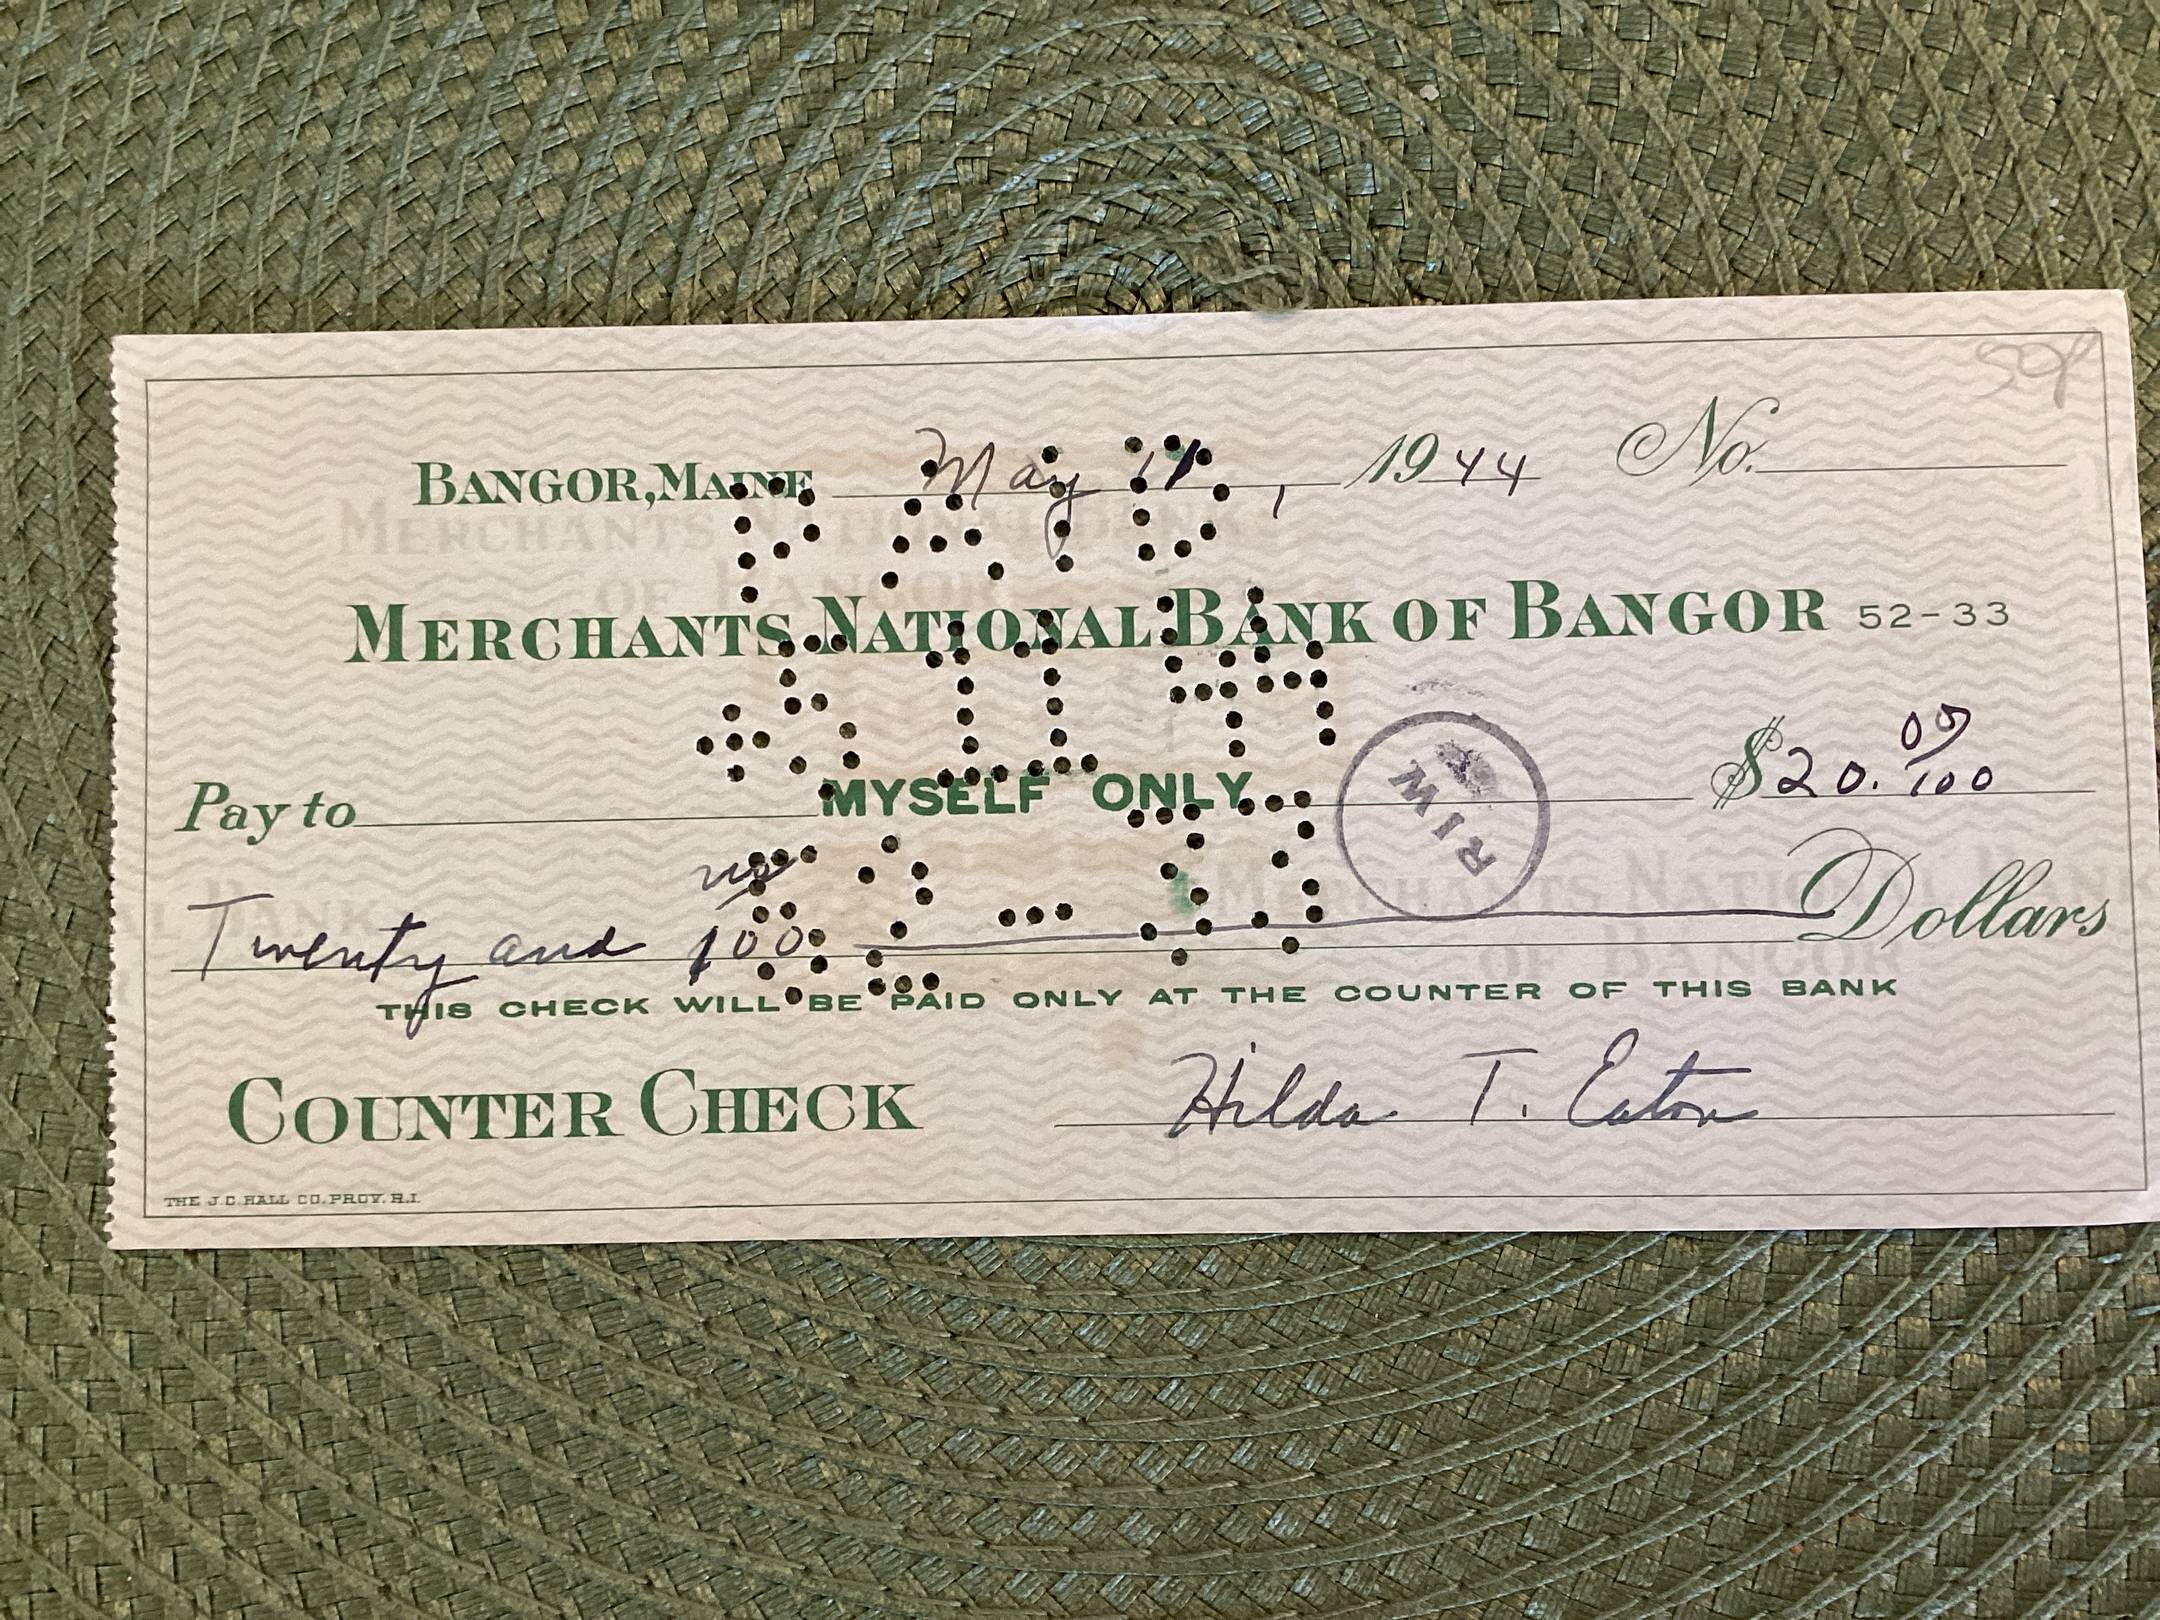 BANGOR, MAINE May 11, 1944 No.
MERCHANTS NATIONAL BANK OF BANGOR 52-33
Pay to MYSELF ONLY $20. 00/100
Twenty and no/100 Dollars
THIS CHECK WILL BE PAID ONLY AT THE COUNTER OF THIS BANK
COUNTER CHECK Hilda T. Eaton
THE J.C. HALL CO. PROV. R.I.
RIW
MERCHANTS NATIONAL BANK
OF BANGOR